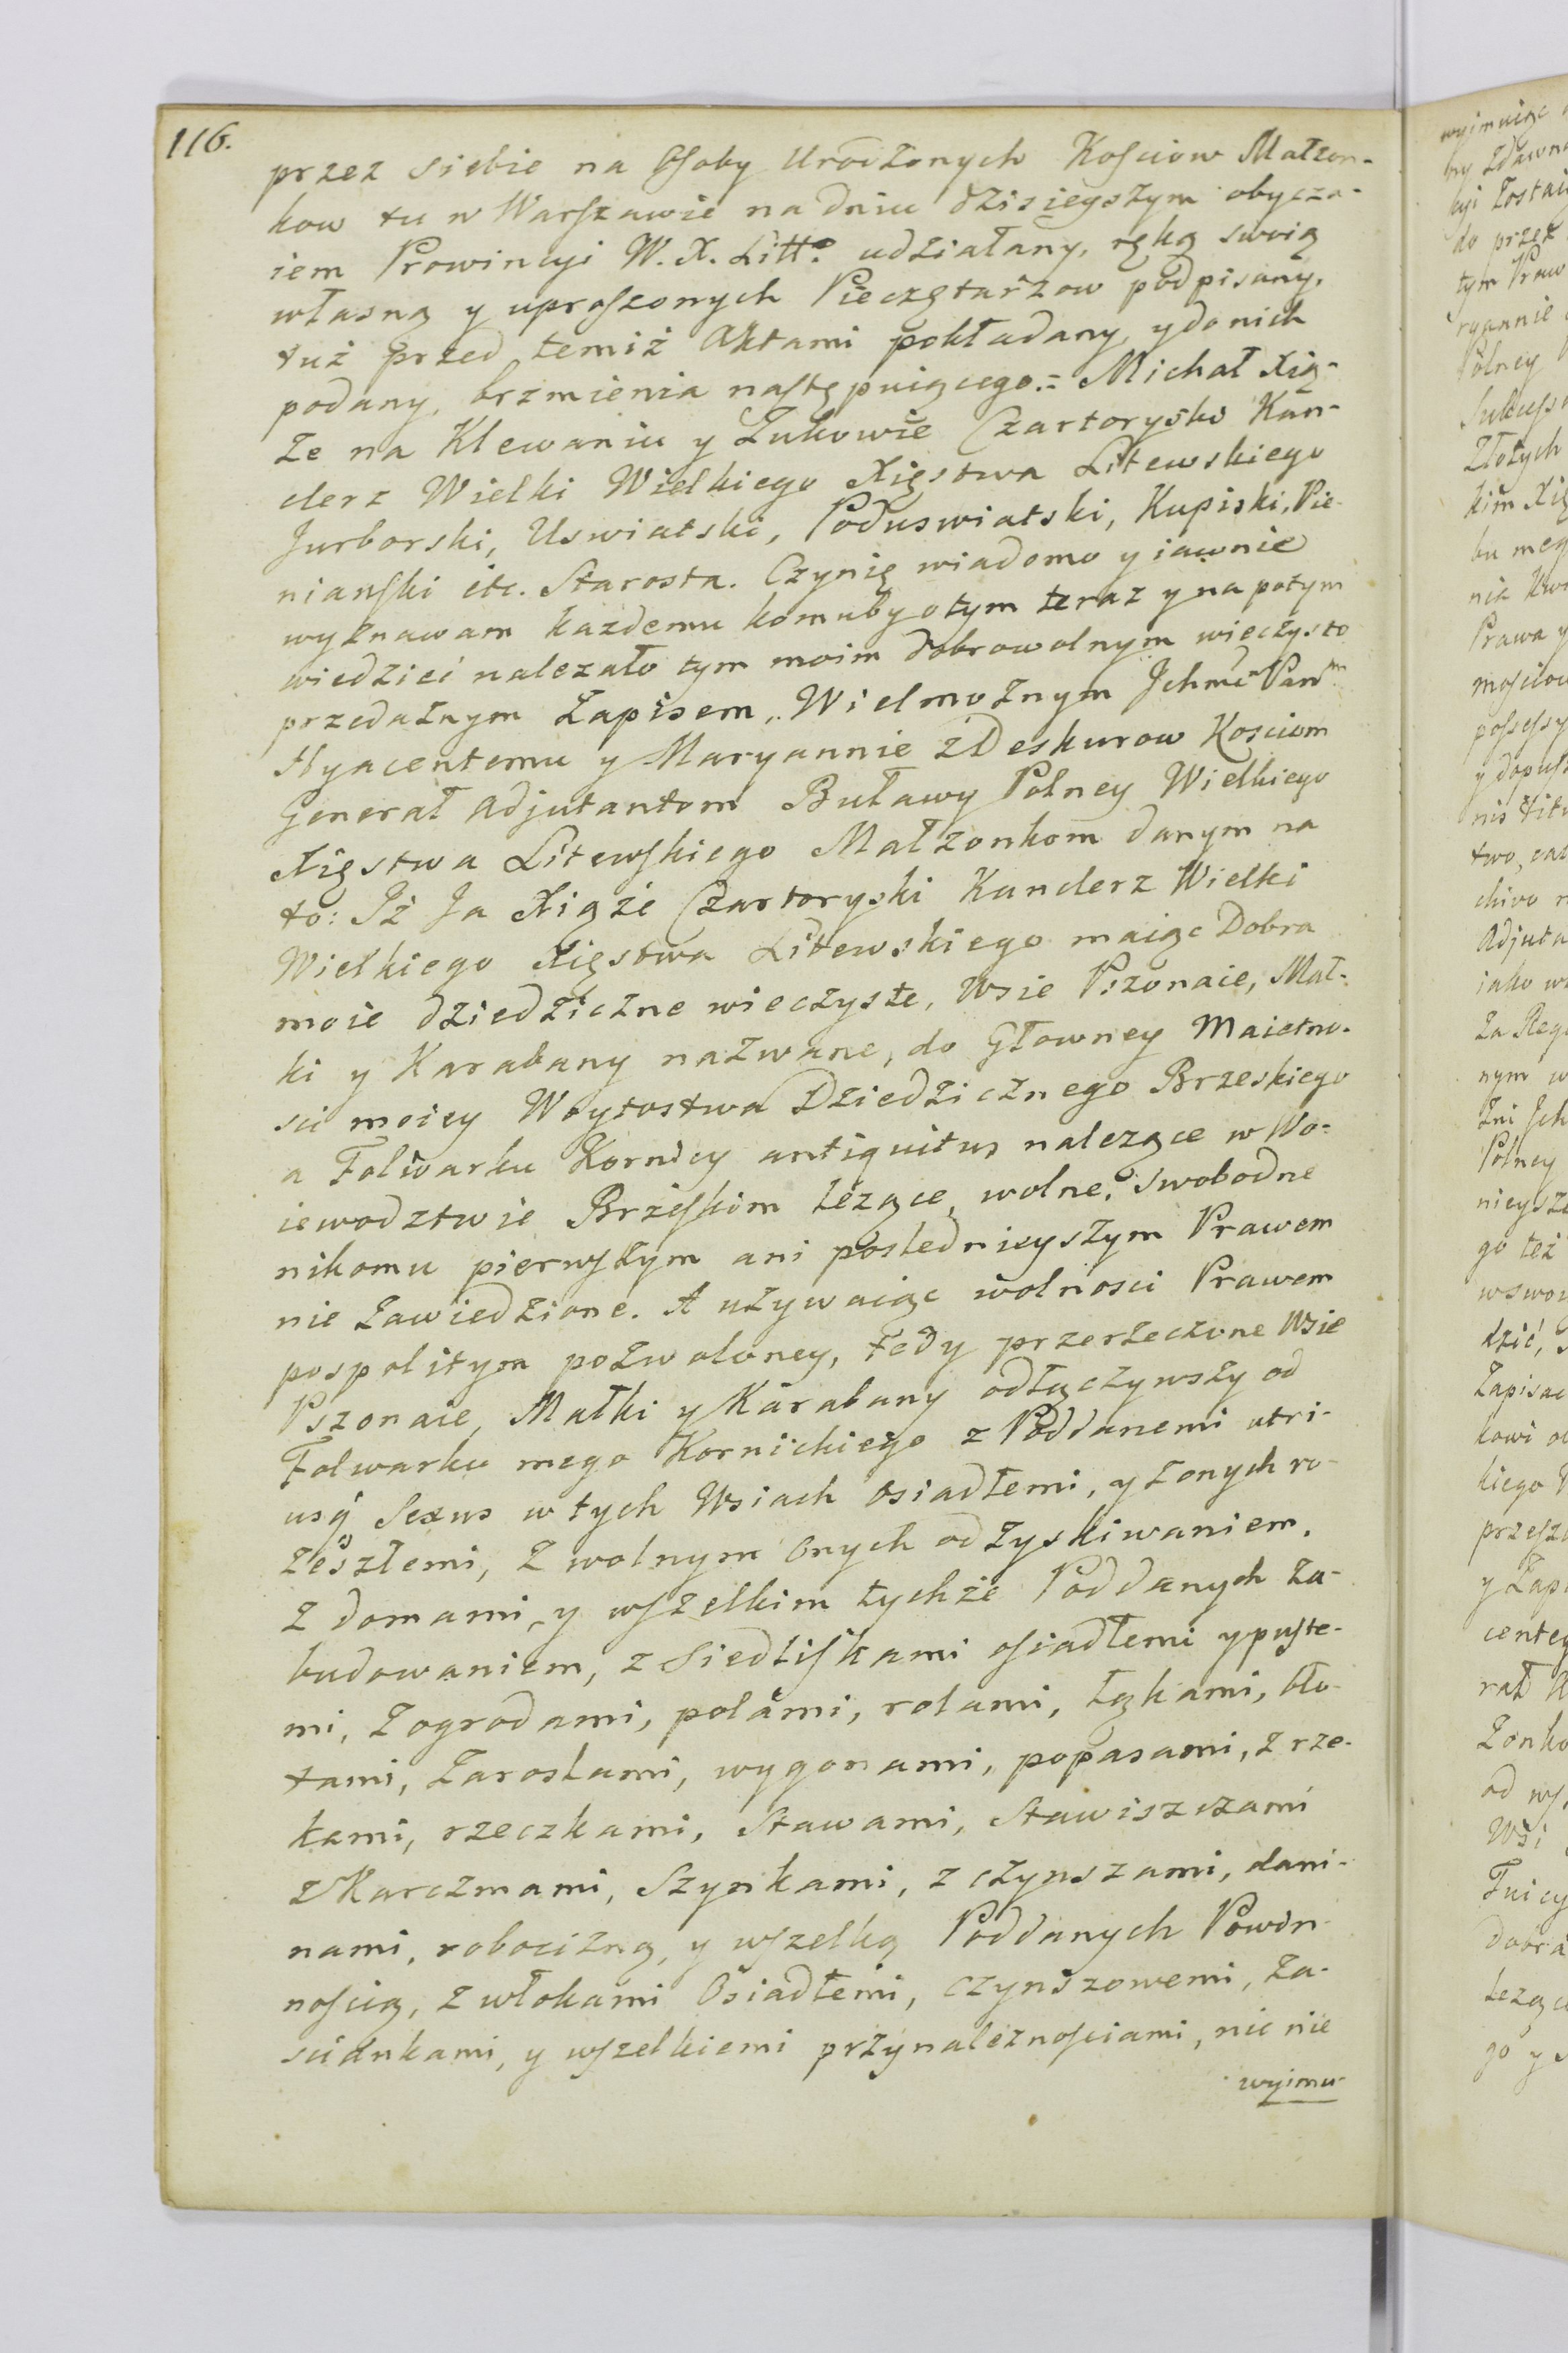 116.
przez siebie na Osoby Urodzonych Kościow Małzon-
kow tu w Warszawie na dniu dzisieyszym obycza-
iem Prowincyi W. X. Litt. udziałany, ręką swoią
własną y uproszonych Pieczętarzow podpisany,
tuż przed temiż Aktami pokładany, y do nich
podany, brzmienia następuiącego.= Michał Xią-
że na Klewaniu y Zukowie Czartoryski Kan-
clerz Wielki Wielkiego Xięstwa Litewskiego
Jurborski, Uswiatski, Poduswiatski, Kupiski, Pie-
nianski etc. Starosta. Czynię wiadomo y iawnie
wyznawam każdemu komuby o tym teraz y na potym
wiedzieć należało tym moim dobrowolnym wieczysto
przedażnym Zapisem, Wielmożnym Ichmć Pan^m
Hyacentemu y Maryannie z Deskurow Kosciom
Generał Adjutantom Buławy Polney Wielkiego
Xięstwa Litewskiego Małżonkom danym na
to: Iż Ja Xiąże Czartoryski Kanclerz Wielki
Wielkiego Xięstwa Litewskiego maiąc Dobra
moie dziedziczne wieczyste, Wsie Pszonaie, Mał-
ki y Karabany nazwane, do Głowney Maiętno-
sci moiey Woytostwa Dziedzicznego Brzeskiego
a Folwarku Kornicy antiquitus należące w Wo-
iewodztwie Brzeskim leżące, wolne, swobodne
nikomu pierwszym ani poslednieyszym Prawem
nie zawiedzione. A używaiąc wolnosci Prawem
pospolitym pozwoloney, tedy przerzeczone Wsie
Pszonaie, Małki y Karabany odłączywszy od
Folwarku mego Kornickiego z Poddanemi utri-
usq Sexus w tych Wsiach osiadłemi, y z onych ro-
zeszłemi, z wolnym onych odzyskiwaniem,
z domami, y wszelkim tychże Poddanych za-
budowaniem, z Siedliskami osiadłemi y puste-
mi, z ogrodami, polami, rolami, łąkami, bło-
tami, zaroslami, wygonami, popasami, z rze-
kami, rzeczkami, Stawami, Stawiszczami
z Karczmami, Szynkami, z czynszami, dani-
nami, robocizną, y wszelką Poddanych Powin-
nością, z włokami Osiadłemi, czynszowemi, za-
sciankami, y wszelkiemi przynależnościami, nic nie
wyimu-